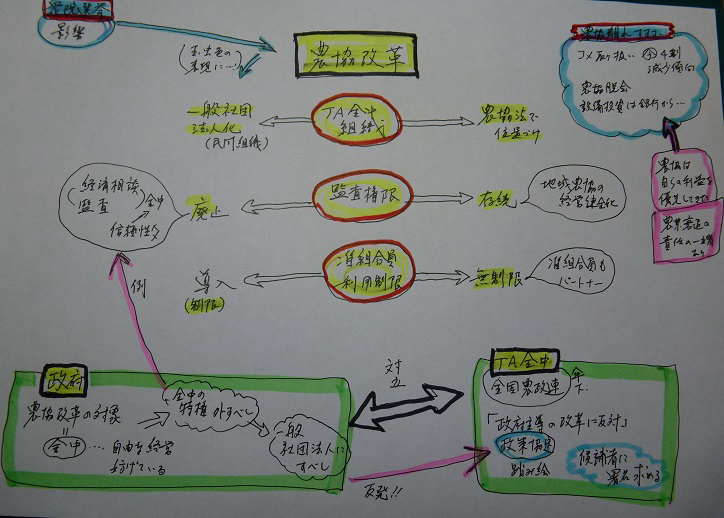 影響
農協改革
一般社団
法人化
(民間組織)
JA全中
組織
農協法で
位置づけ
農協離れ
コメ取り扱い 4割
減少傾向
農協脱会
設備投資は銀行から…
農協は
自らの利益を
優先してきた
農業衰退の
責任の一端
あり
経済相談
監査
全中
信頼性
廃止
監査権限
存続
地域農協の
経営健全化
導入
(制限)
准組合員
利用制限
無制限
准組合員も
パートナー
例
政府
農協改革の対象
全中 … 自由な経営
妨げている
全中の
特権 外すべし
一般
社団法人に
すべし
対
立
反発!!
JA全中
全国農政連
「政府主導の改革に反対」
政策協定
踏み絵
候補者に
署名求める